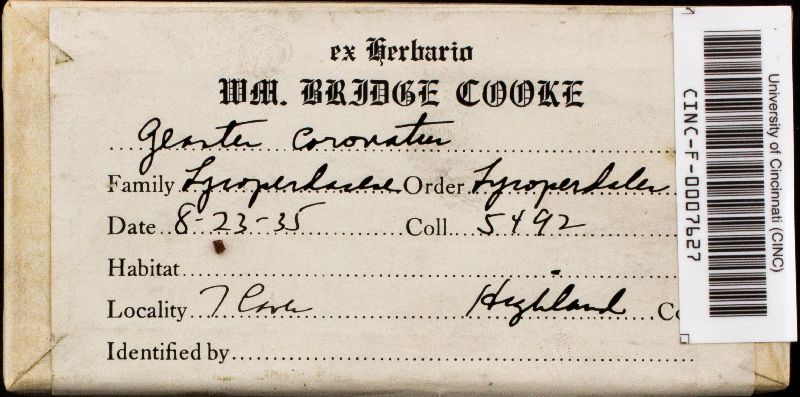 ex Herbario
WM. BRIDGE COOKE
Geaster coronatus
Family Lycoperdaceae Order Lycoperdales
Date 8-23-35 Coll. 5492
Habitat
Locality 7 Caves Highland Co
Identified by
University of Cincinnati (CINC)
CINC-F-0007627